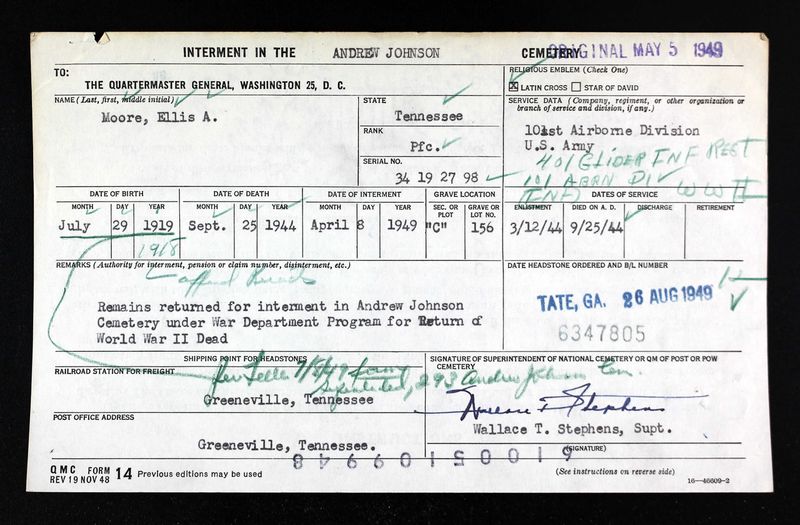 INTERMENT IN THE ANDREW JOHNSON CEMETERY
ORIGINAL MAY 5 1949
TO:
THE QUARTERMASTER GENERAL, WASHINGTON 25, D. C.
RELIGIOUS EMBLEM (Check One)
☒ LATIN CROSS ☐ STAR OF DAVID
NAME (Last, first, middle initial)
Moore, Ellis A.
STATE
Tennessee
RANK
Pfc.
SERIAL NO.
34 19 27 98
SERVICE DATA (Company, regiment, or other organization or
branch of service and division, if any.)
101st Airborne Division
U.S. Army
401 GLIDER INF REGT
101 ABRN DIV
(INF) WW II
DATE OF BIRTH DATE OF DEATH DATE OF INTERMENT GRAVE LOCATION DATES OF SERVICE
MONTH DAY YEAR MONTH DAY YEAR MONTH DAY YEAR SEC. OR PLOT GRAVE OR LOT NO. ENLISTMENT DIED ON A. D. DISCHARGE RETIREMENT
July 29 1919 Sept. 25 1944 April 8 1949 "C" 156 3/12/44 9/25/44
1918
REMARKS (Authority for interment, pension or claim number, disinterment, etc.)
Remains returned for interment in Andrew Johnson
Cemetery under War Department Program for Return of
World War II Dead
DATE HEADSTONE ORDERED AND B/L NUMBER
TATE, GA. 26 AUG 1949
6347805
SHIPPING POINT FOR HEADSTONES
RAILROAD STATION FOR FREIGHT
per Letter 7/8/49 from
Supt, 293 Andrew Johnson Cem.
Greeneville, Tennessee
POST OFFICE ADDRESS
Greeneville, Tennessee.
SIGNATURE OF SUPERINTENDENT OF NATIONAL CEMETERY OR QM OF POST OR POW
CEMETERY
Wallace T. Stephens
Wallace T. Stephens, Supt.
(SIGNATURE)
61005109948
QMC FORM 14 Previous editions may be used
REV 19 NOV 48
(See instructions on reverse side)
16—46609-2